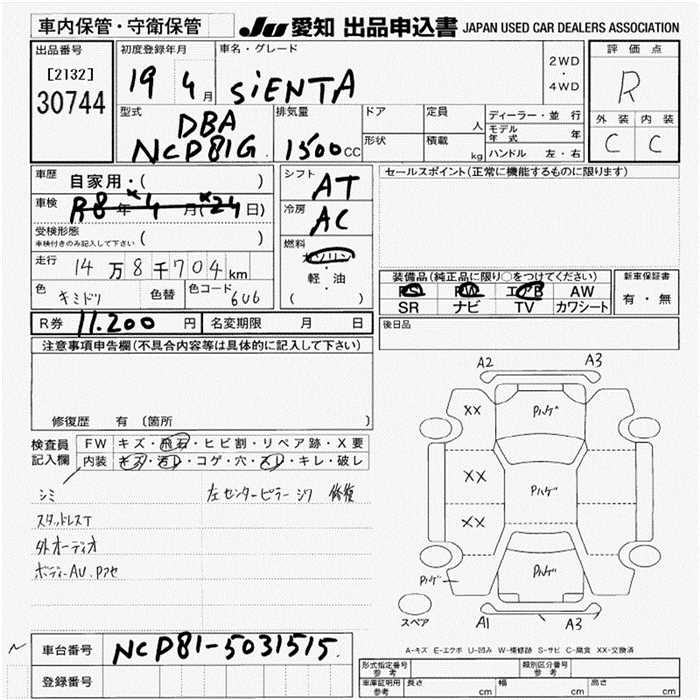 車内保管・守衛保管
JU 愛知 出品申込書 JAPAN USED CAR DEALERS ASSOCIATION
出品番号
[2132]
30744
初度登録年月
19 4 月
車名・グレード
SiENTA
2WD
・
4WD
評価点
R
外装 内装
C C
型式
DBA
NCP81G
排気量
1500 CC
ドア
形状
定員
人
積載
kg
ディーラー・並行
モデル年式 年
ハンドル 左・右
車歴 自家用・( )
車検 R8年 4月(24日)
受検形態
車検付きのみ記入して下さい ( )
走行 14万8千704km
色 キミドリ 色替 色コード 6U6
シフト AT
冷房 AC
燃料
ガソリン
・
軽・油
( )
セールスポイント(正常に機能するものに限ります)
装備品(純正品に限り○をつけてください)
PS PW エアB AW
SR ナビ TV カワシート
新車保証書
有・無
後日品
R券 11.200 円 名変期限 月 日
注意事項申告欄(不具合内容等は具体的に記入して下さい)
修復歴 有 〔箇所 〕
検査員記入欄
FW キズ・飛石・ヒビ割・リペア跡・X要
内装 キズ・汚レ・コゲ・穴・スレ・キレ・破レ
シミ
左センターピラー シワ 修復
スタッドレスT
外オーディオ
ボディーAU.Pアセ
A2 A3
XX Pハゲ
XX Pハゲ
XX
Pハゲ Pハゲ
スペア A1 A3
A-キズ E-エクボ U-凹み W-補修跡 S-サビ C-腐食 XX-交換済
車台番号 NCP81-5031515.
登録番号
形式指定番号
参考
類別区分番号
参考
車庫証明用
参考
長さ cm 幅 cm 高さ cm